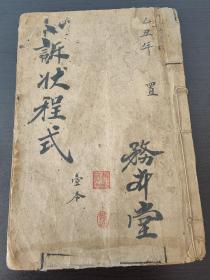 乙丑年 置
訴状程式
壹本
務本堂